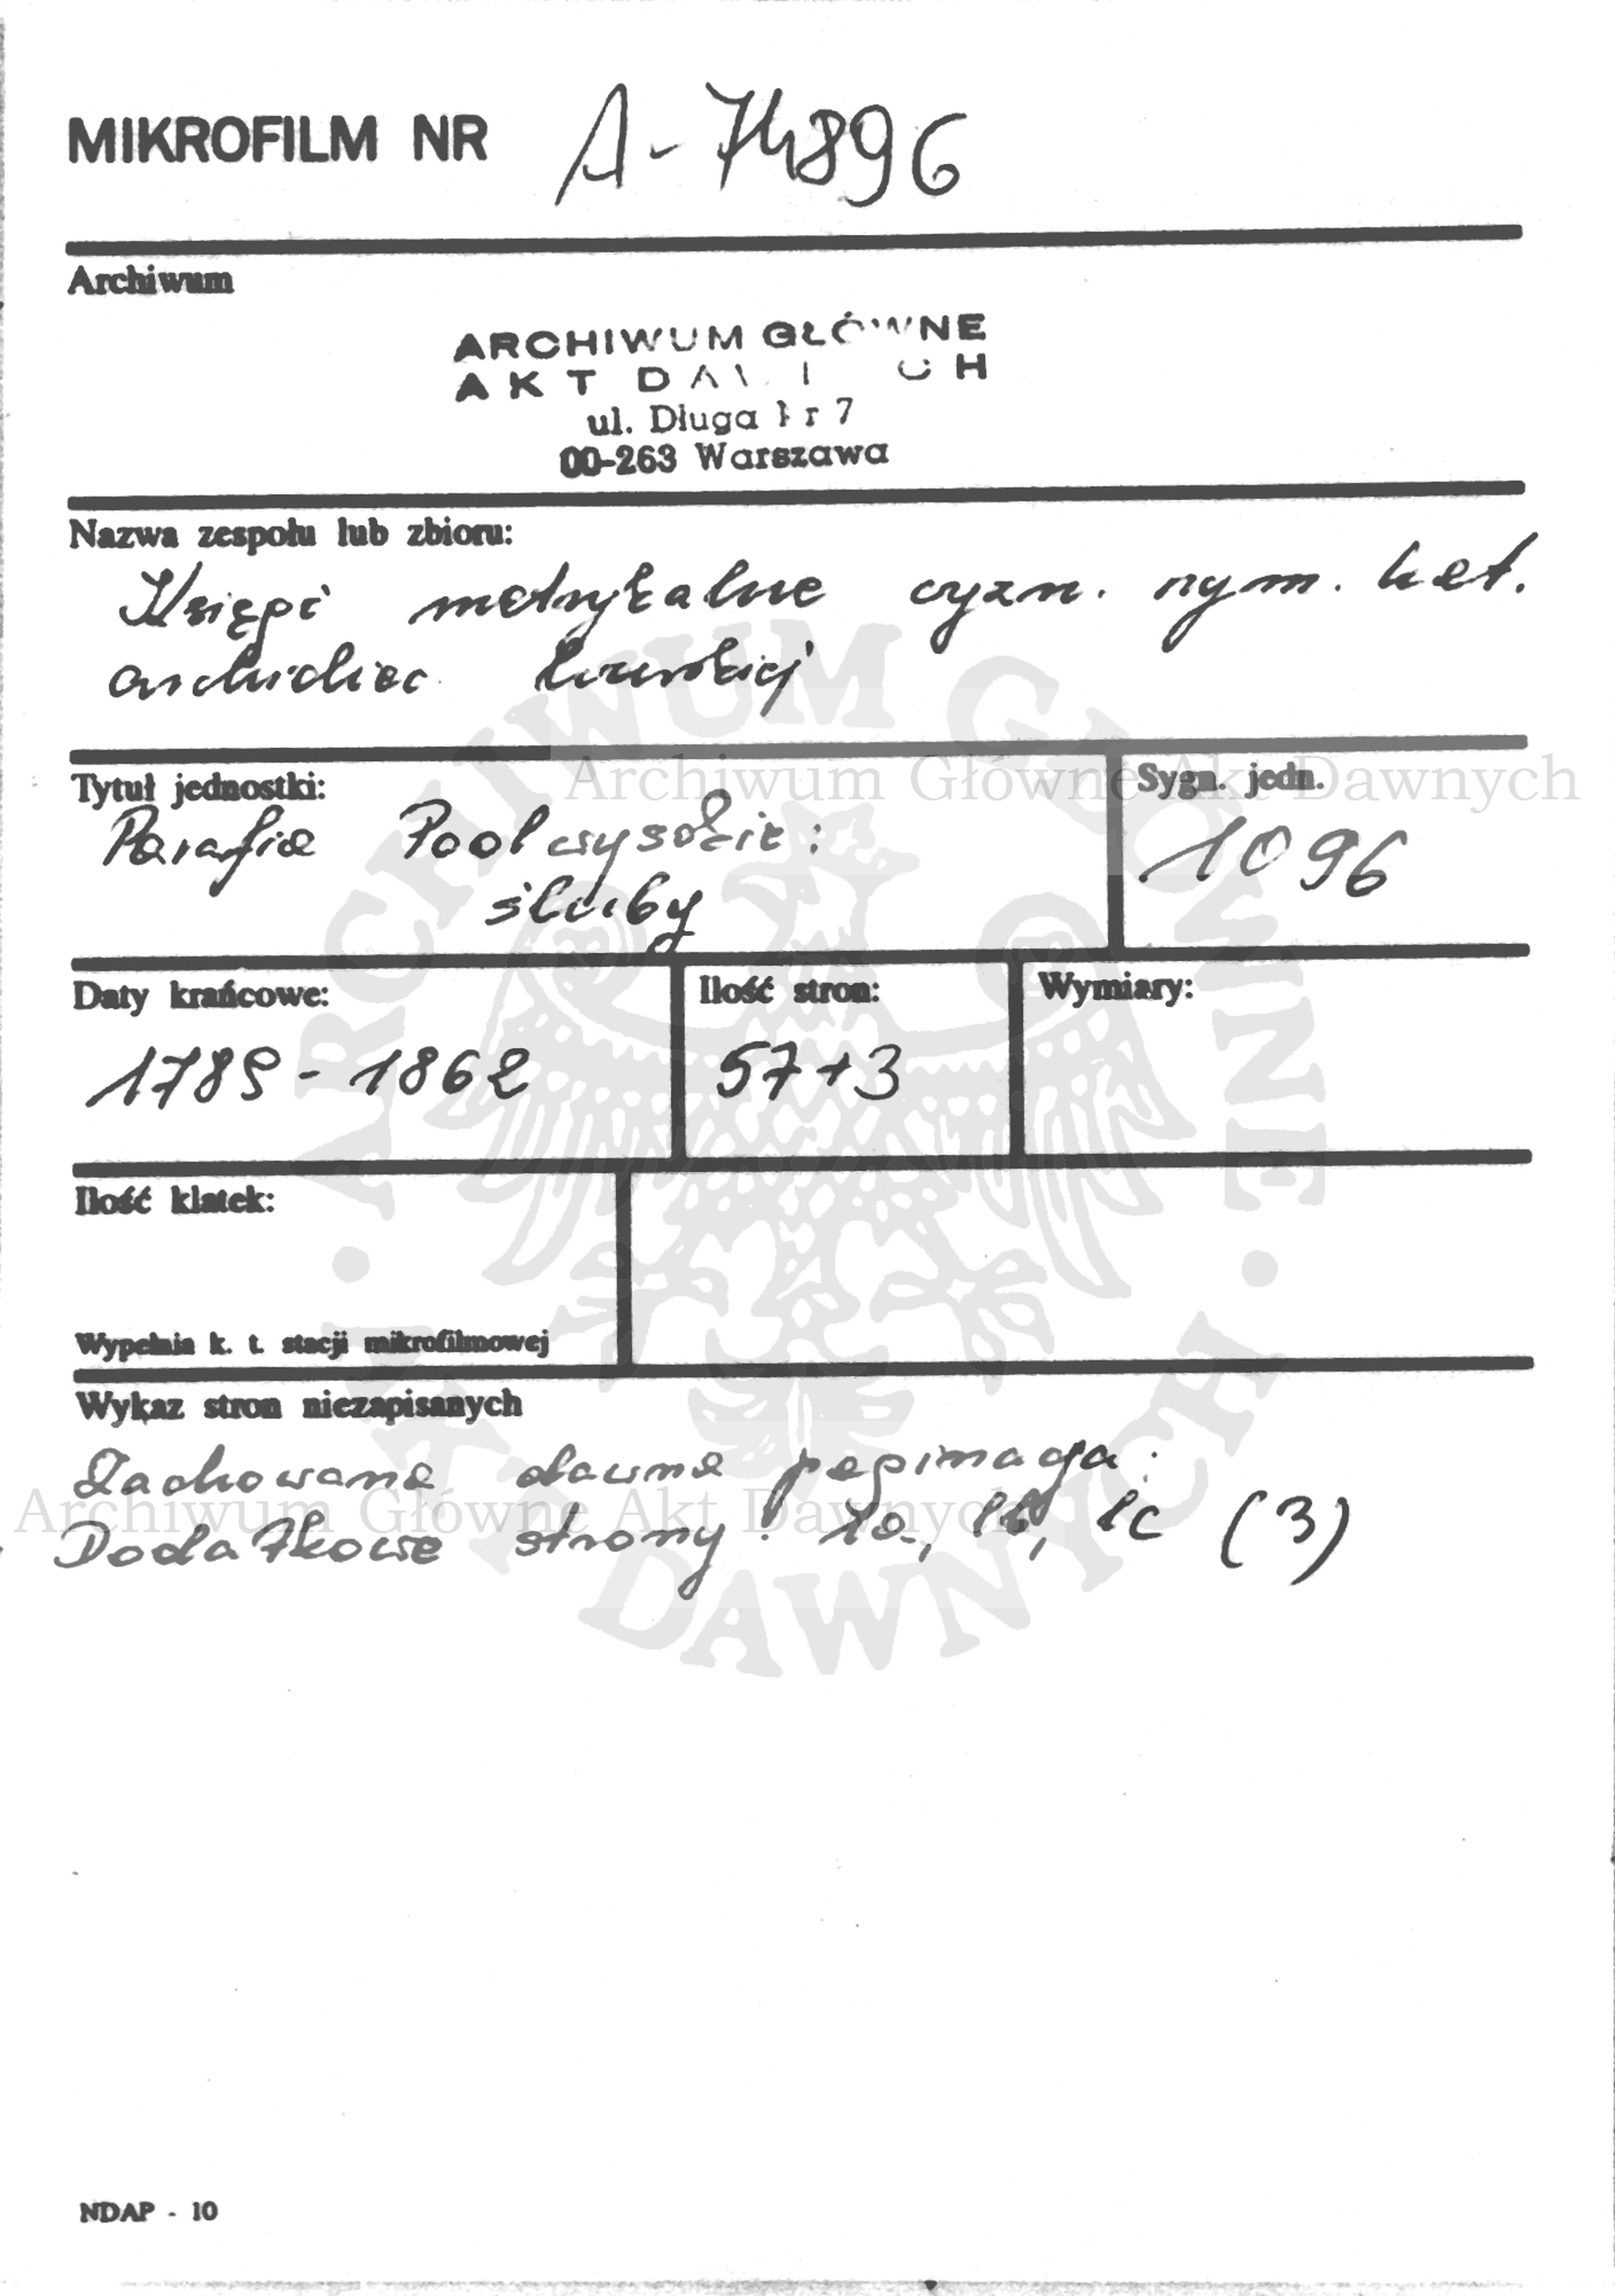 MIKROFILM NR A-74896
Archiwum
ARCHIWUM GŁÓWNE
AKT DAWNYCH
ul. Długa Nr 7
00-263 Warszawa
Nazwa zespołu lub zbioru:
Księgi metrykalne wyzn. rzym. kat.
archidiec. lwowskiej
Tytuł jednostki:
Sygn. jedn.
Archiwum Główne Akt Dawnych
Parafia Podwysokie:
śluby
1096
Daty krańcowe:
Ilość stron:
Wymiary:
1789 - 1862
57+3
Ilość klatek:
Wypełnia k. t. stacji mikrofilmowej
Wykaz stron niezapisanych
Zachowana dawna paginacja.
Archiwum Główne Akt Dawnych
Dodatkowe strony: 1a, 1b, 1c (3)
ARCHIWUM GŁÓWNE
AKT DAWNYCH
NDAP - 10